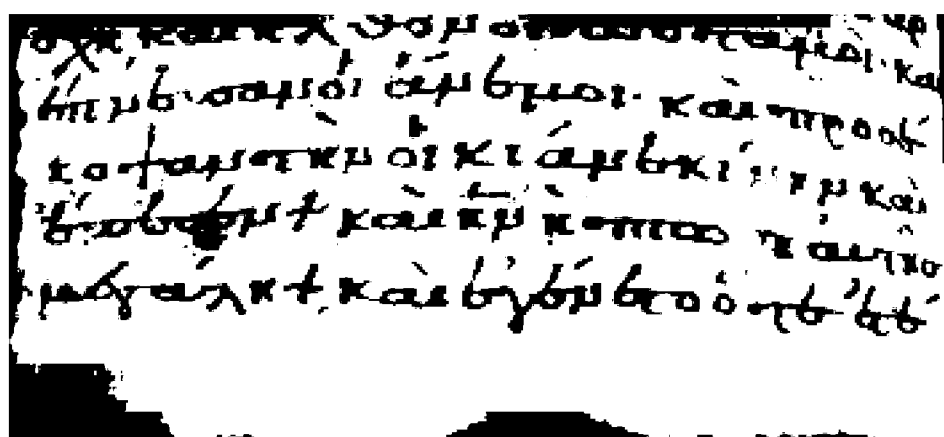 οχὴ καὶ ἦλθον οἱ ποταμοὶ· καὶ
ἔπνευσαν οἱ ἄνεμοι· καὶ προσέ
κοψαν τῆ οἰκία ἐκείνη· καὶ
ἔπεσεν + καὶ ἦν ἡ πτῶσις αὐτῆς
μεγάλη + καὶ ἐγένετο ὅτε ἐτέ